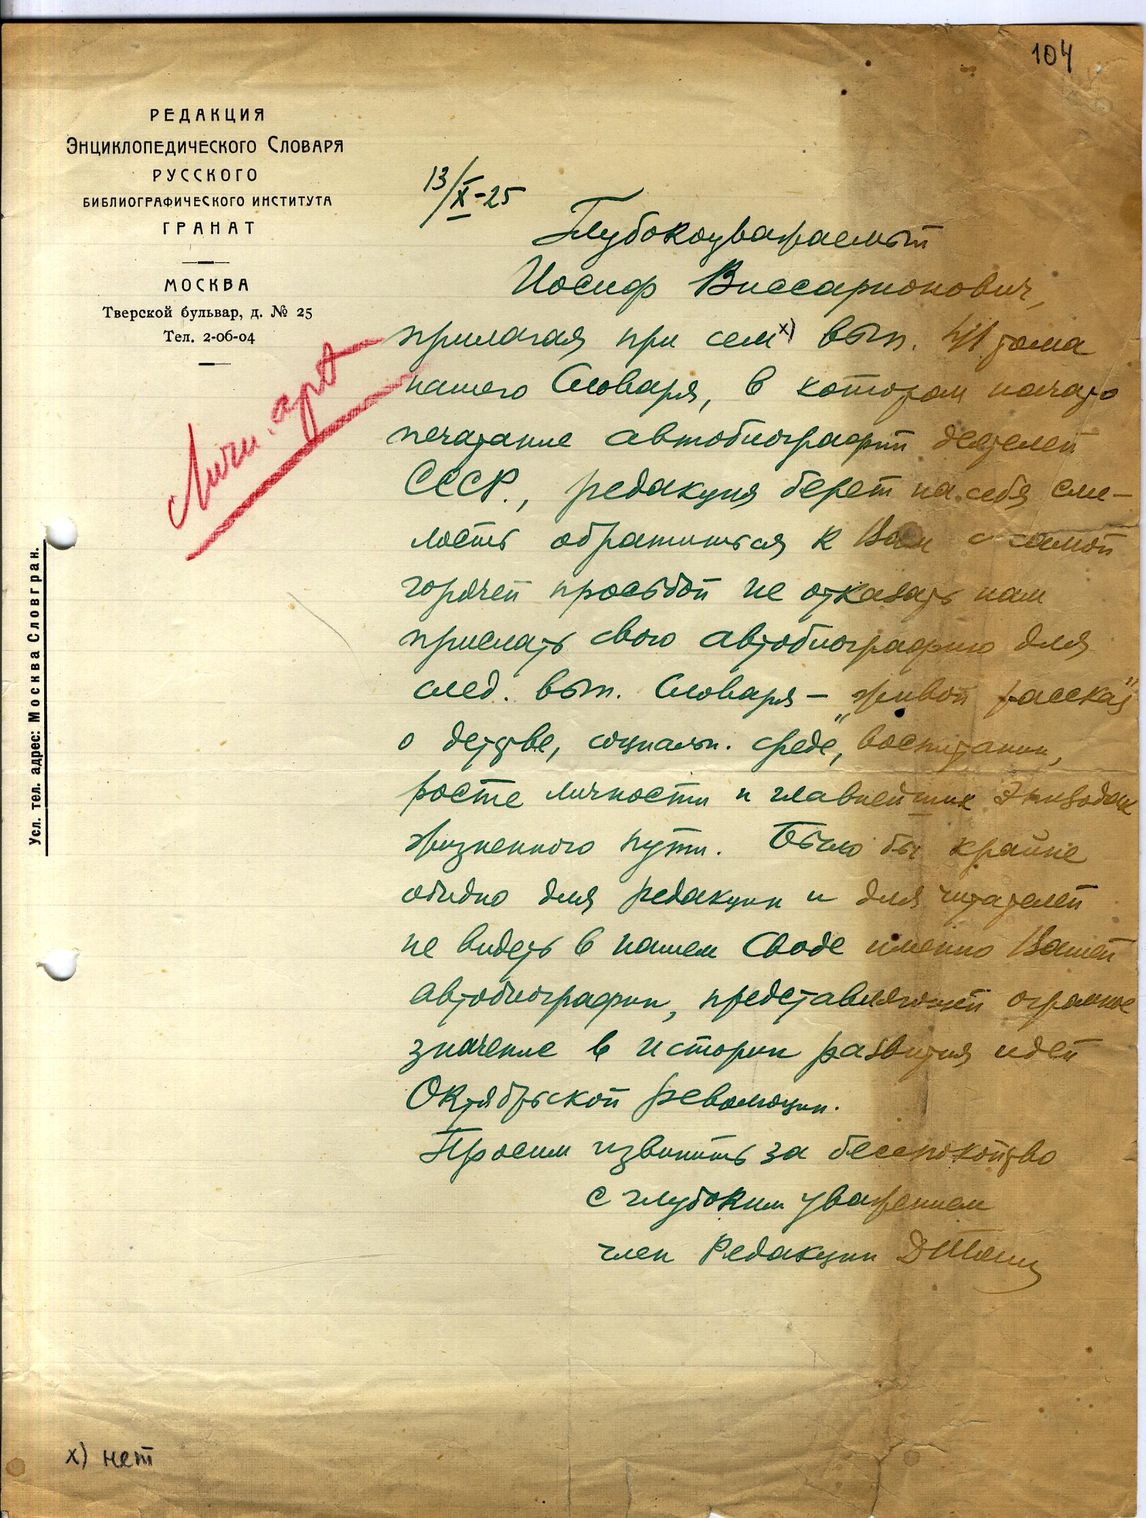 104
РЕДАКЦИЯ
Энциклопедического Словаря
РУССКОГО
БИБЛИОГРАФИЧЕСКОГО ИНСТИТУТА
ГРАНАТ
МОСКВА
Тверской бульвар, д. № 25
Тел. 2-06-04
13/X-25
Глубокоуважаемый
Иосиф Виссарионович,
прилагая при сем x) вып. тома
нашего Словаря, в котором начато
печатание автобиографий деятелей
СССР., редакция берет на себя сме-
лость обратиться к Вам с самой
горячей просьбой не отказать нам
прислать свою автобиографию для
след. вып. Словаря – "живой рассказ"
о детстве, социальн. среде, воспитании,
росте личности и главнейших эпизодах
жизненного пути. Было бы крайне
обидно для редакции и для читателей
не видеть в нашем Своде именно Вашей
автобиографии, представляющей огромное
значение в истории развития идей
Октябрьской революции.
Просим извинить за беспокойство
с глубоким уважением
член Редакции
Личн. арх
Усл. тел. адрес: Москва Словгран.
x) нет